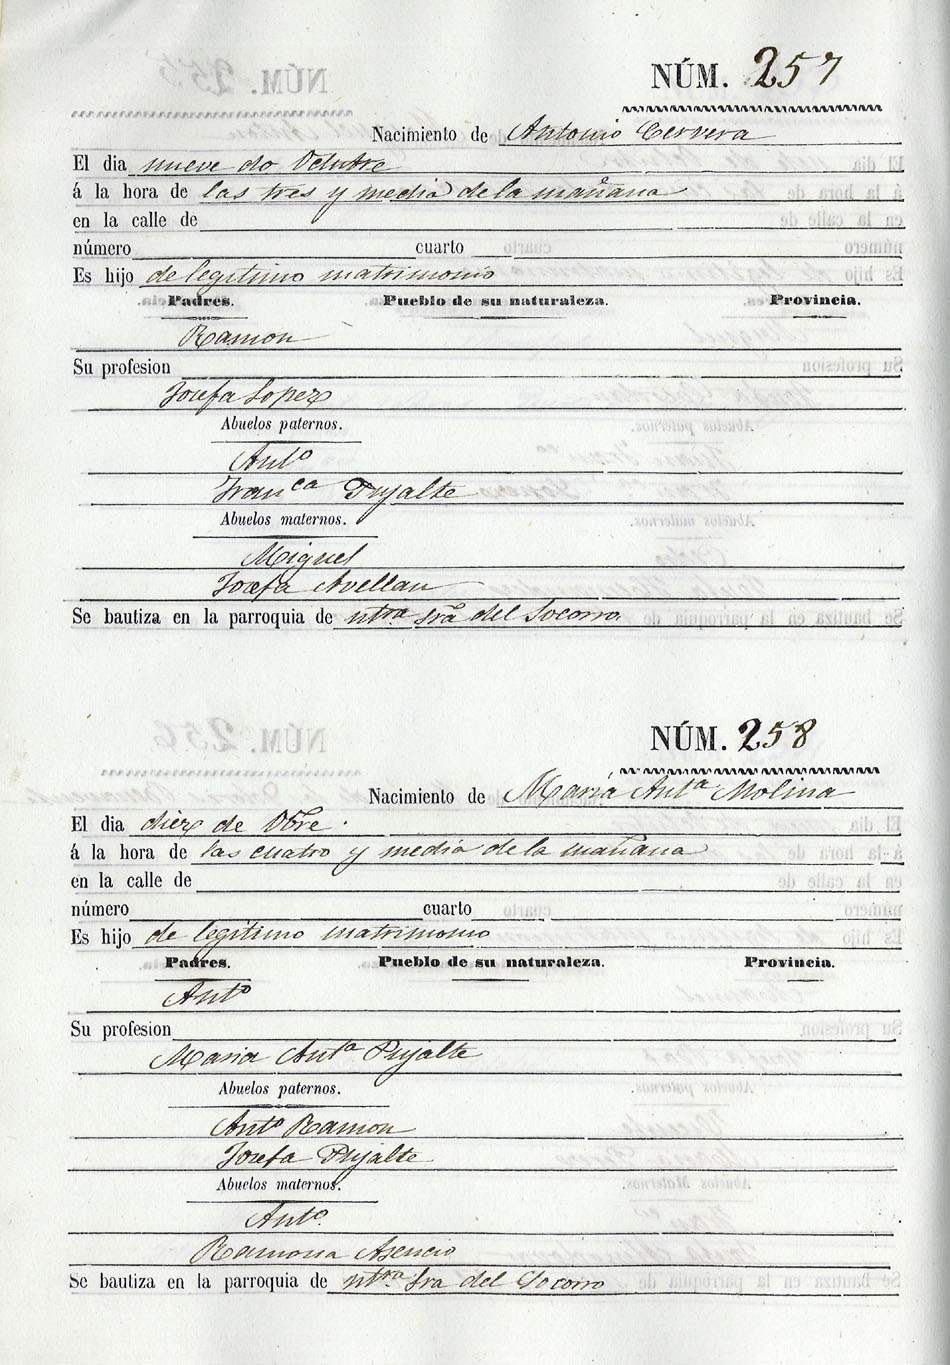 NÚM. 257
Nacimiento de Antonio Cervera
El dia nueve de Octubre
á la hora de las tres y media de la mañana
en la calle de
número cuarto
Es hijo de legitimo matrimonio
Padres. Pueblo de su naturaleza. Provincia.
Ramon
Su profesion
Josefa Lopez
Abuelos paternos.
Antº
Franca Pujalte
Abuelos maternos.
Miguel
Josefa Avellan
Se bautiza en la parroquia de ntra Sra del Socorro
NÚM. 258
Nacimiento de María Anta Molina
El dia diez de 8bre.
á la hora de las cuatro y media de la mañana
en la calle de
número cuarto
Es hijo de legitimo matrimonio
Padres. Pueblo de su naturaleza. Provincia.
Antº
Su profesion
Maria Anta Pujalte
Abuelos paternos.
Antº Ramon
Josefa Pujalte
Abuelos maternos.
Antº
Ramona Asencio
Se bautiza en la parroquia de ntra Sra del Socorro